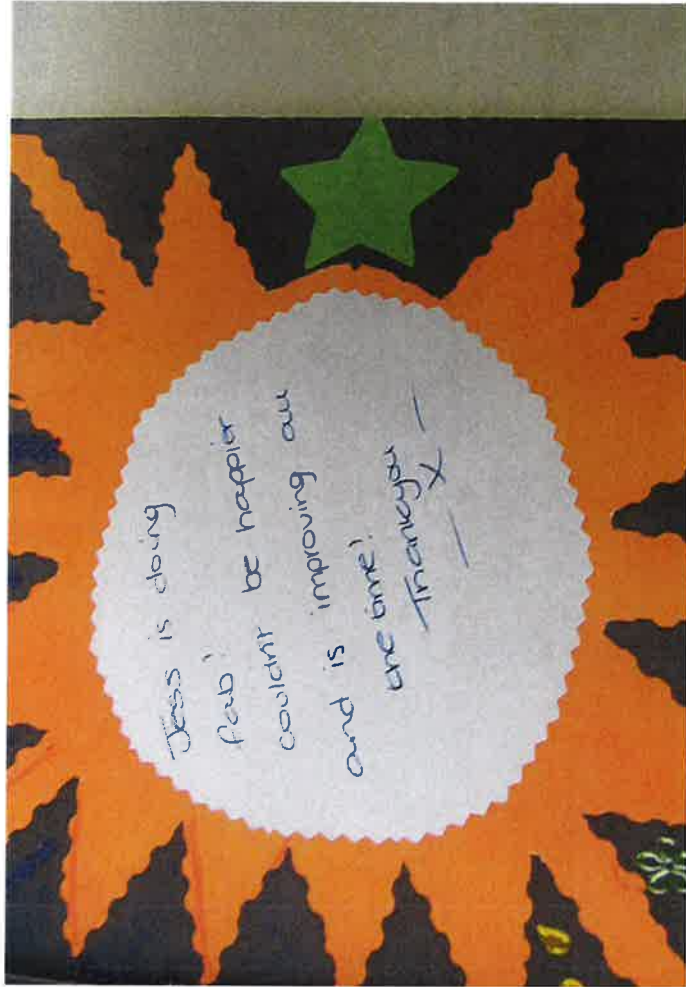 Jess is doing
fab!
couldn't be happier
and is improving all
the time!
Thankyou
— X —